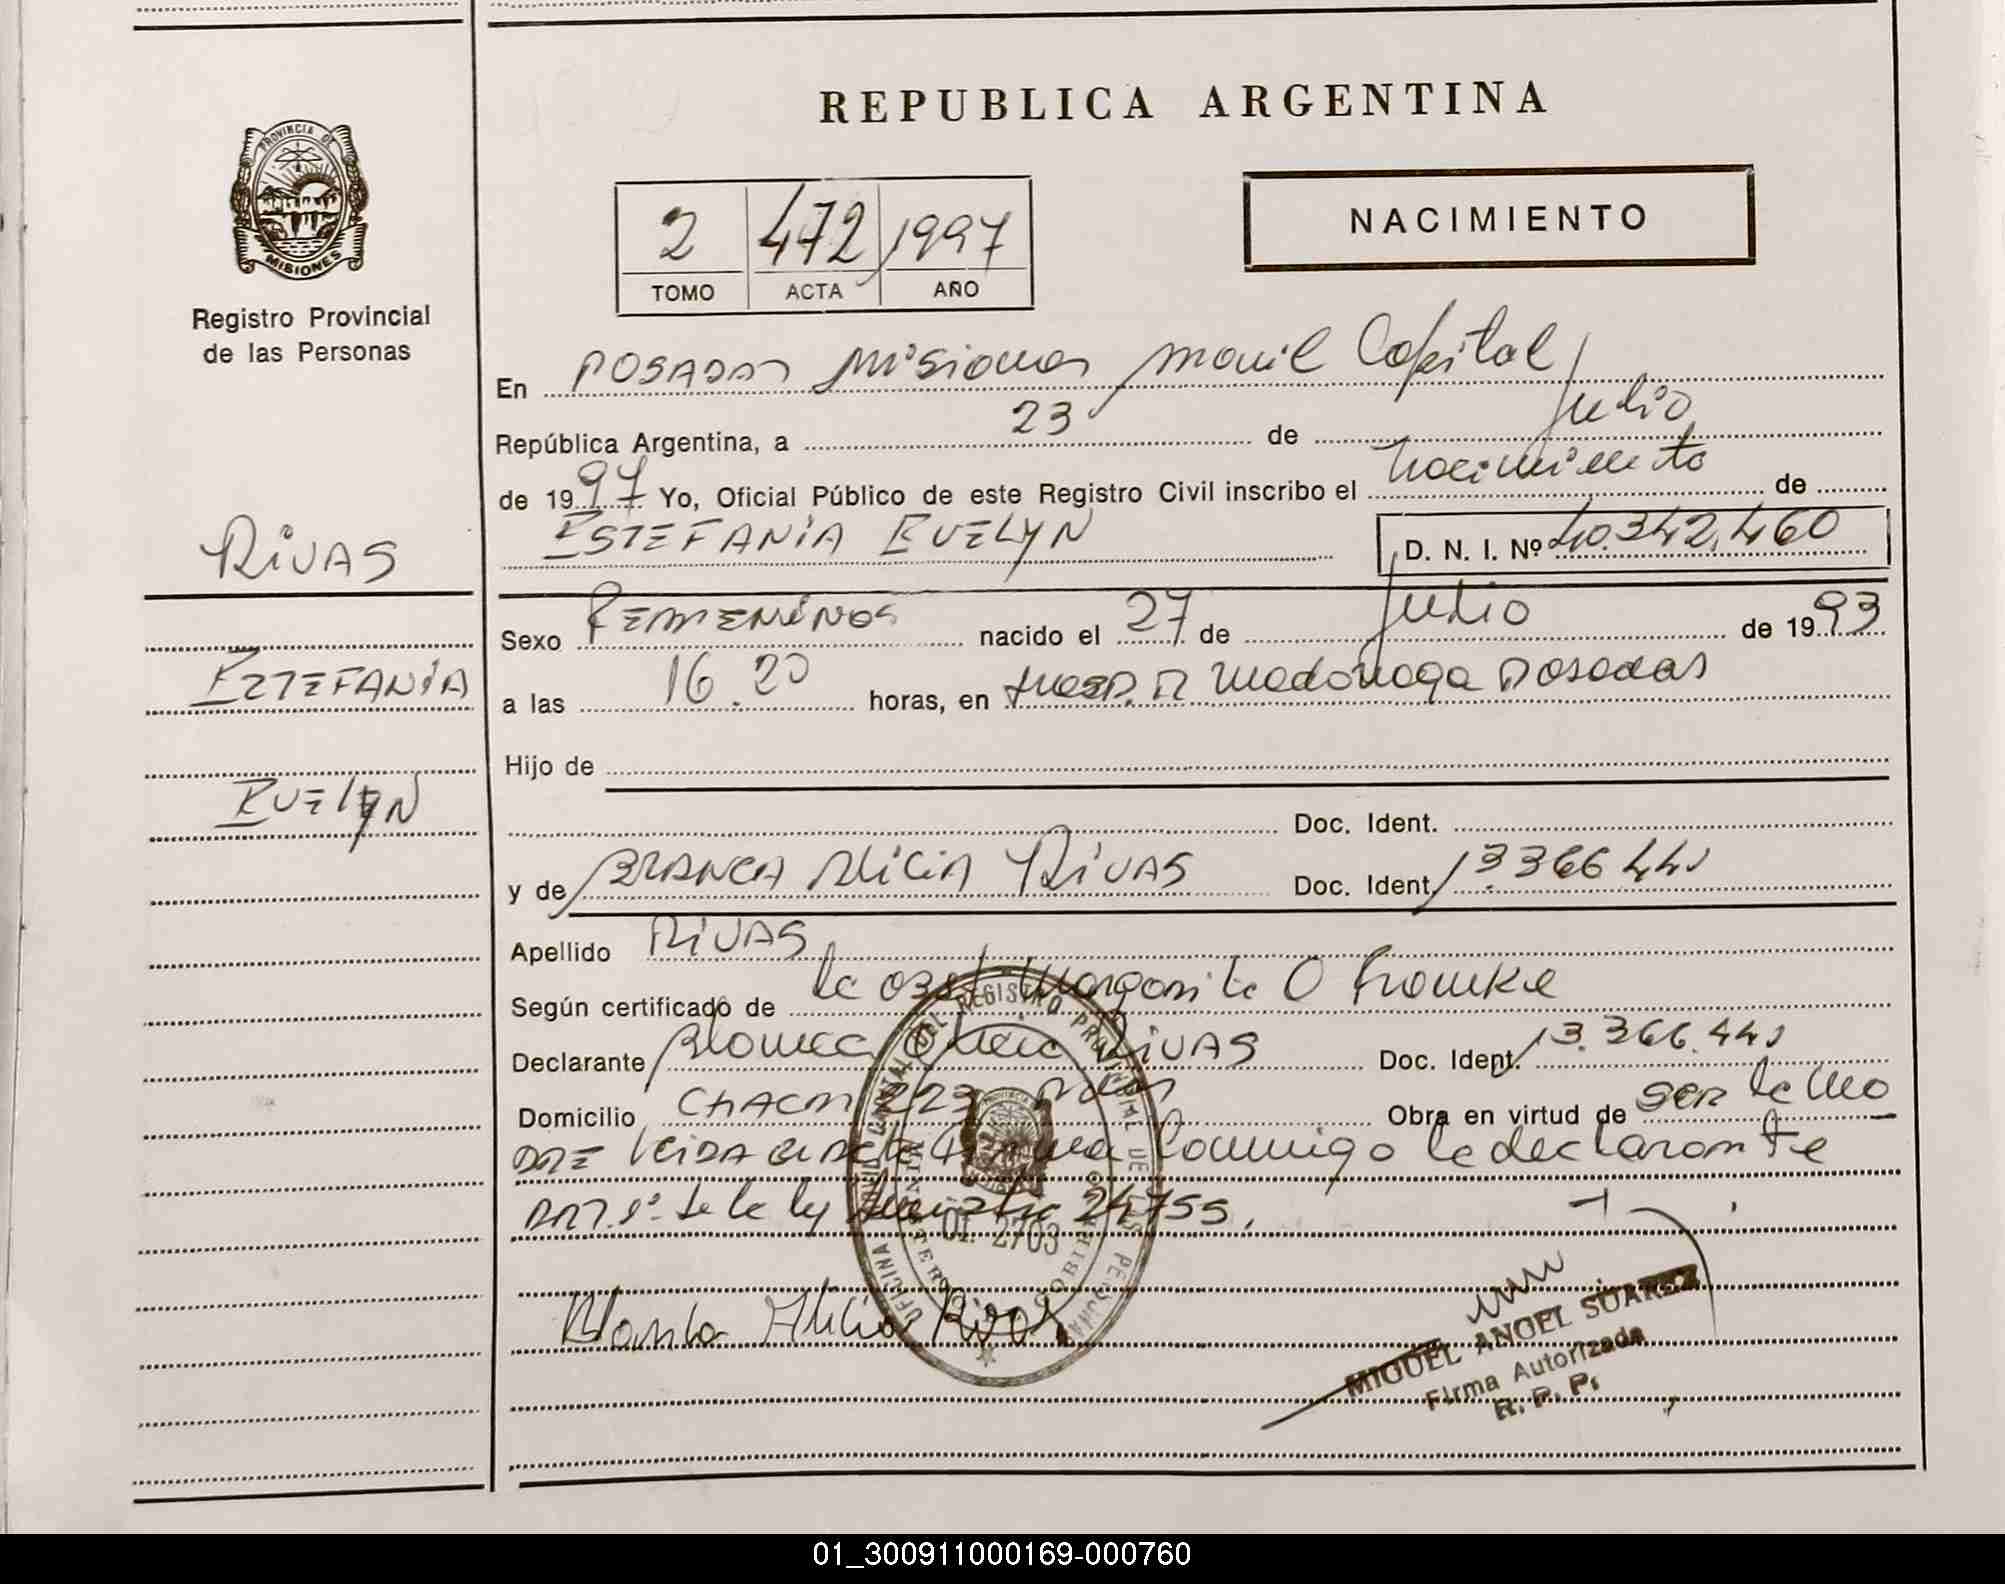 REPUBLICA ARGENTINA
PROVINCIA DE
MISIONES
Registro Provincial
de las Personas
NACIMIENTO
2 472 1997
TOMO ACTA AÑO
En POSADAS Misiones movil Capital
República Argentina, a 23 de Julio
de 1997 Yo, Oficial Público de este Registro Civil inscribo el nacimiento de
ESTEFANIA EVELYN D. N. I. Nº 40.342.460
RIVAS
ESTEFANIA
EVELYN
Sexo FEMENINOS nacido el 27 de Julio de 1993
a las 16.20 horas, en Hosp. R Madariaga Posadas
Hijo de
Doc. Ident.
y de BLANCA ALICIA RIVAS Doc. Ident. 13.366.441
Apellido RIVAS
Según certificado de la obst Margarita O
Declarante Blanca Alicia RIVAS Doc. Ident. 13.366.441
Domicilio CHACRA 223 Obra en virtud de ser la ma
DRE LEIDA el ACTA firma Conmigo la declarante
ART. 1º de la ley 24755.
OFICINA DEL REGISTRO PROVINCIAL DE LAS PERSONAS
01 2703
Blanca Alicia Rivas
MIGUEL ANGEL SUAREZ
Firma Autorizada
R. P. P.
01_300911000169-000760